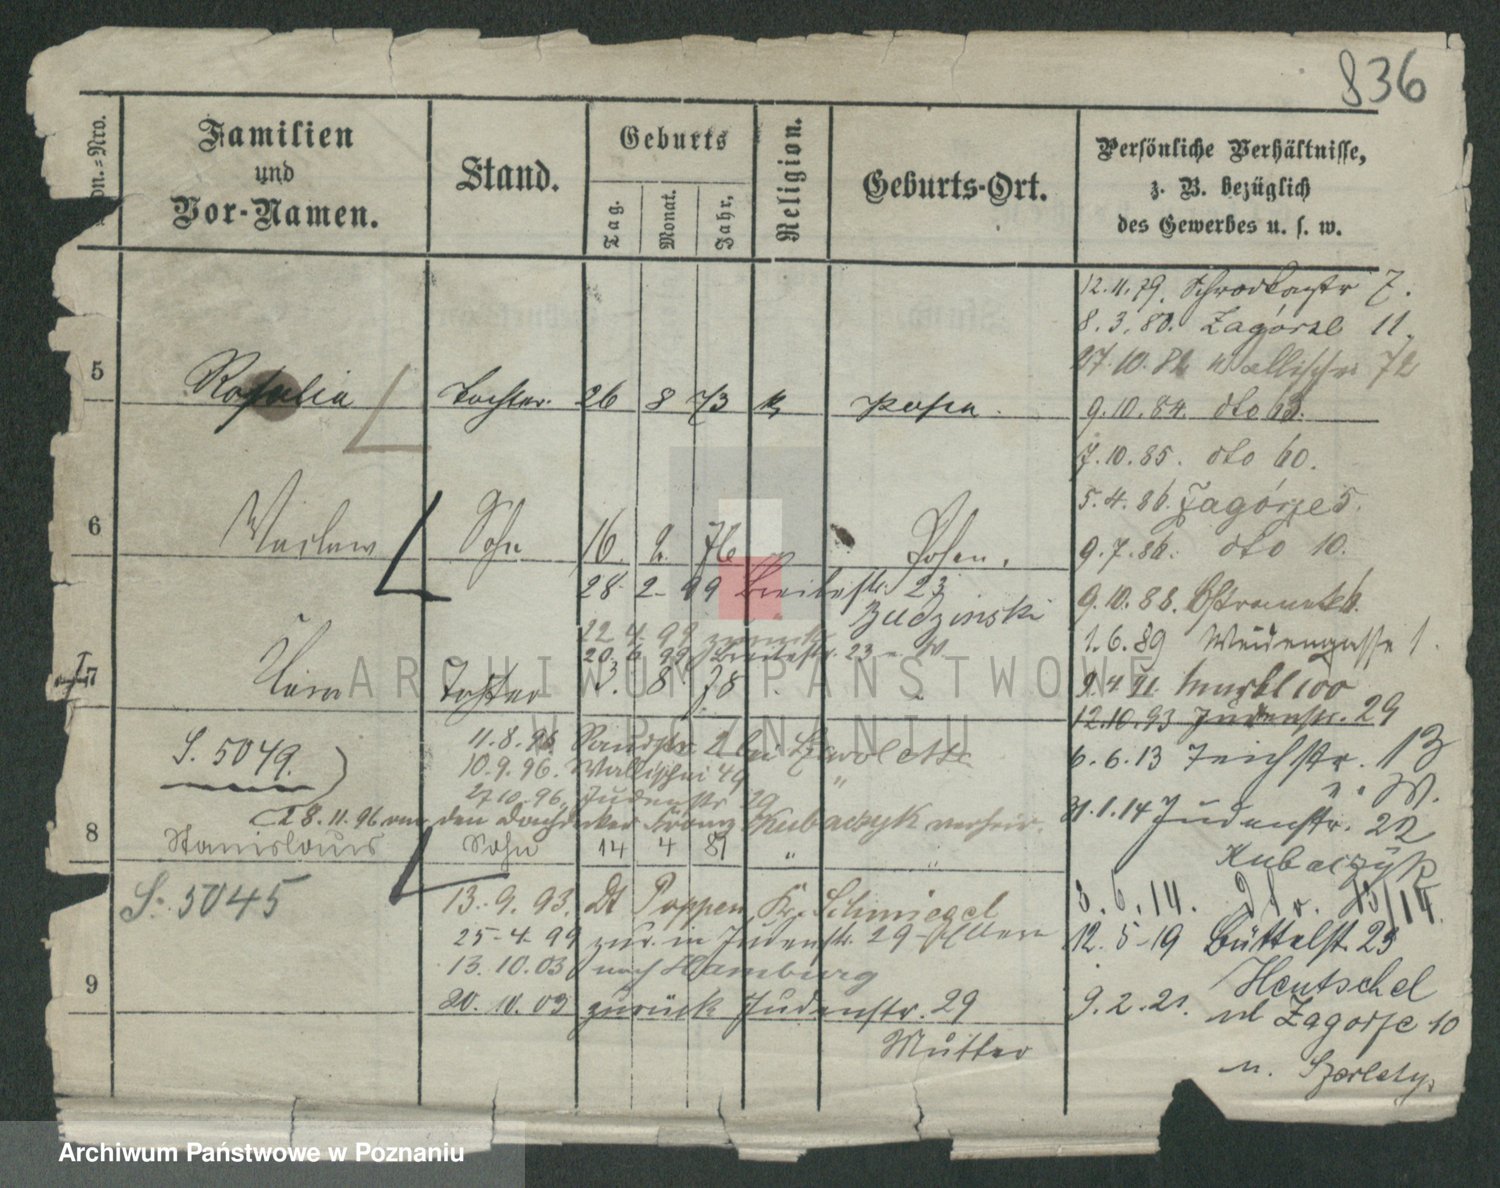 836
Familien
und
Vor-Namen.
Stand.
Geburts
Tag.
Monat.
Jahr.
Religion.
Geburts-Ort.
Persönliche Verhältnisse,
z. B. bezüglich
des Gewerbes u. s. w.
12.11.79. Schrodkastr 7.
8.3.80. Zagórze 11.
27.10.82 Wallischei 72
5 Rosalia Tochter. 26 8 73 k Posen.
9.10.84. dto 13.
7.10.85. dto 60.
5.4.86. Zagórze 5.
6 Waclaw Sohn 16. 2. 76 Posen.
9.7.86. dto 10.
28. 2. 99 Breitestr. 23
Zudzinski
9.10.88. Ostrowek 6.
22 4 99 zurück
20. 6 99 Breitestr. 23
1.6.89 Weidengasse 1.
7 Tochter 3. 8 78
9.4.91. 100
12.10.93 Judenstr. 29
S. 5049.
11.8.96. Sandstr. 2 bei
10.9.96. Wallischei 49
27.10.96. Judenstr 29
6.6.13 Teichstr. 13
v. W.
28.11.96 von den Dachdecker Franz Kubaczyk verheir.
31.1.14 Judenstr. 22
Kubaczyk
8 Stanislaus Sohn 14 4 81 " "
S. 5045
13.9.93. Dt Poppen, Kr. Schmiegel
3.6.14. 13/14.
25-4-99 zur. in Judenstr. 29 - Eltern
12.5-19 Büttelst. 23
Hentschel
13.10.03 nach Hamburg
9
20.10.03 zurück Judenstr. 29
Mutter
9.2.21. Zagorze 10
ARCHIWUM PAŃSTWOWE
W POZNANIU
Archiwum Państwowe w Poznaniu